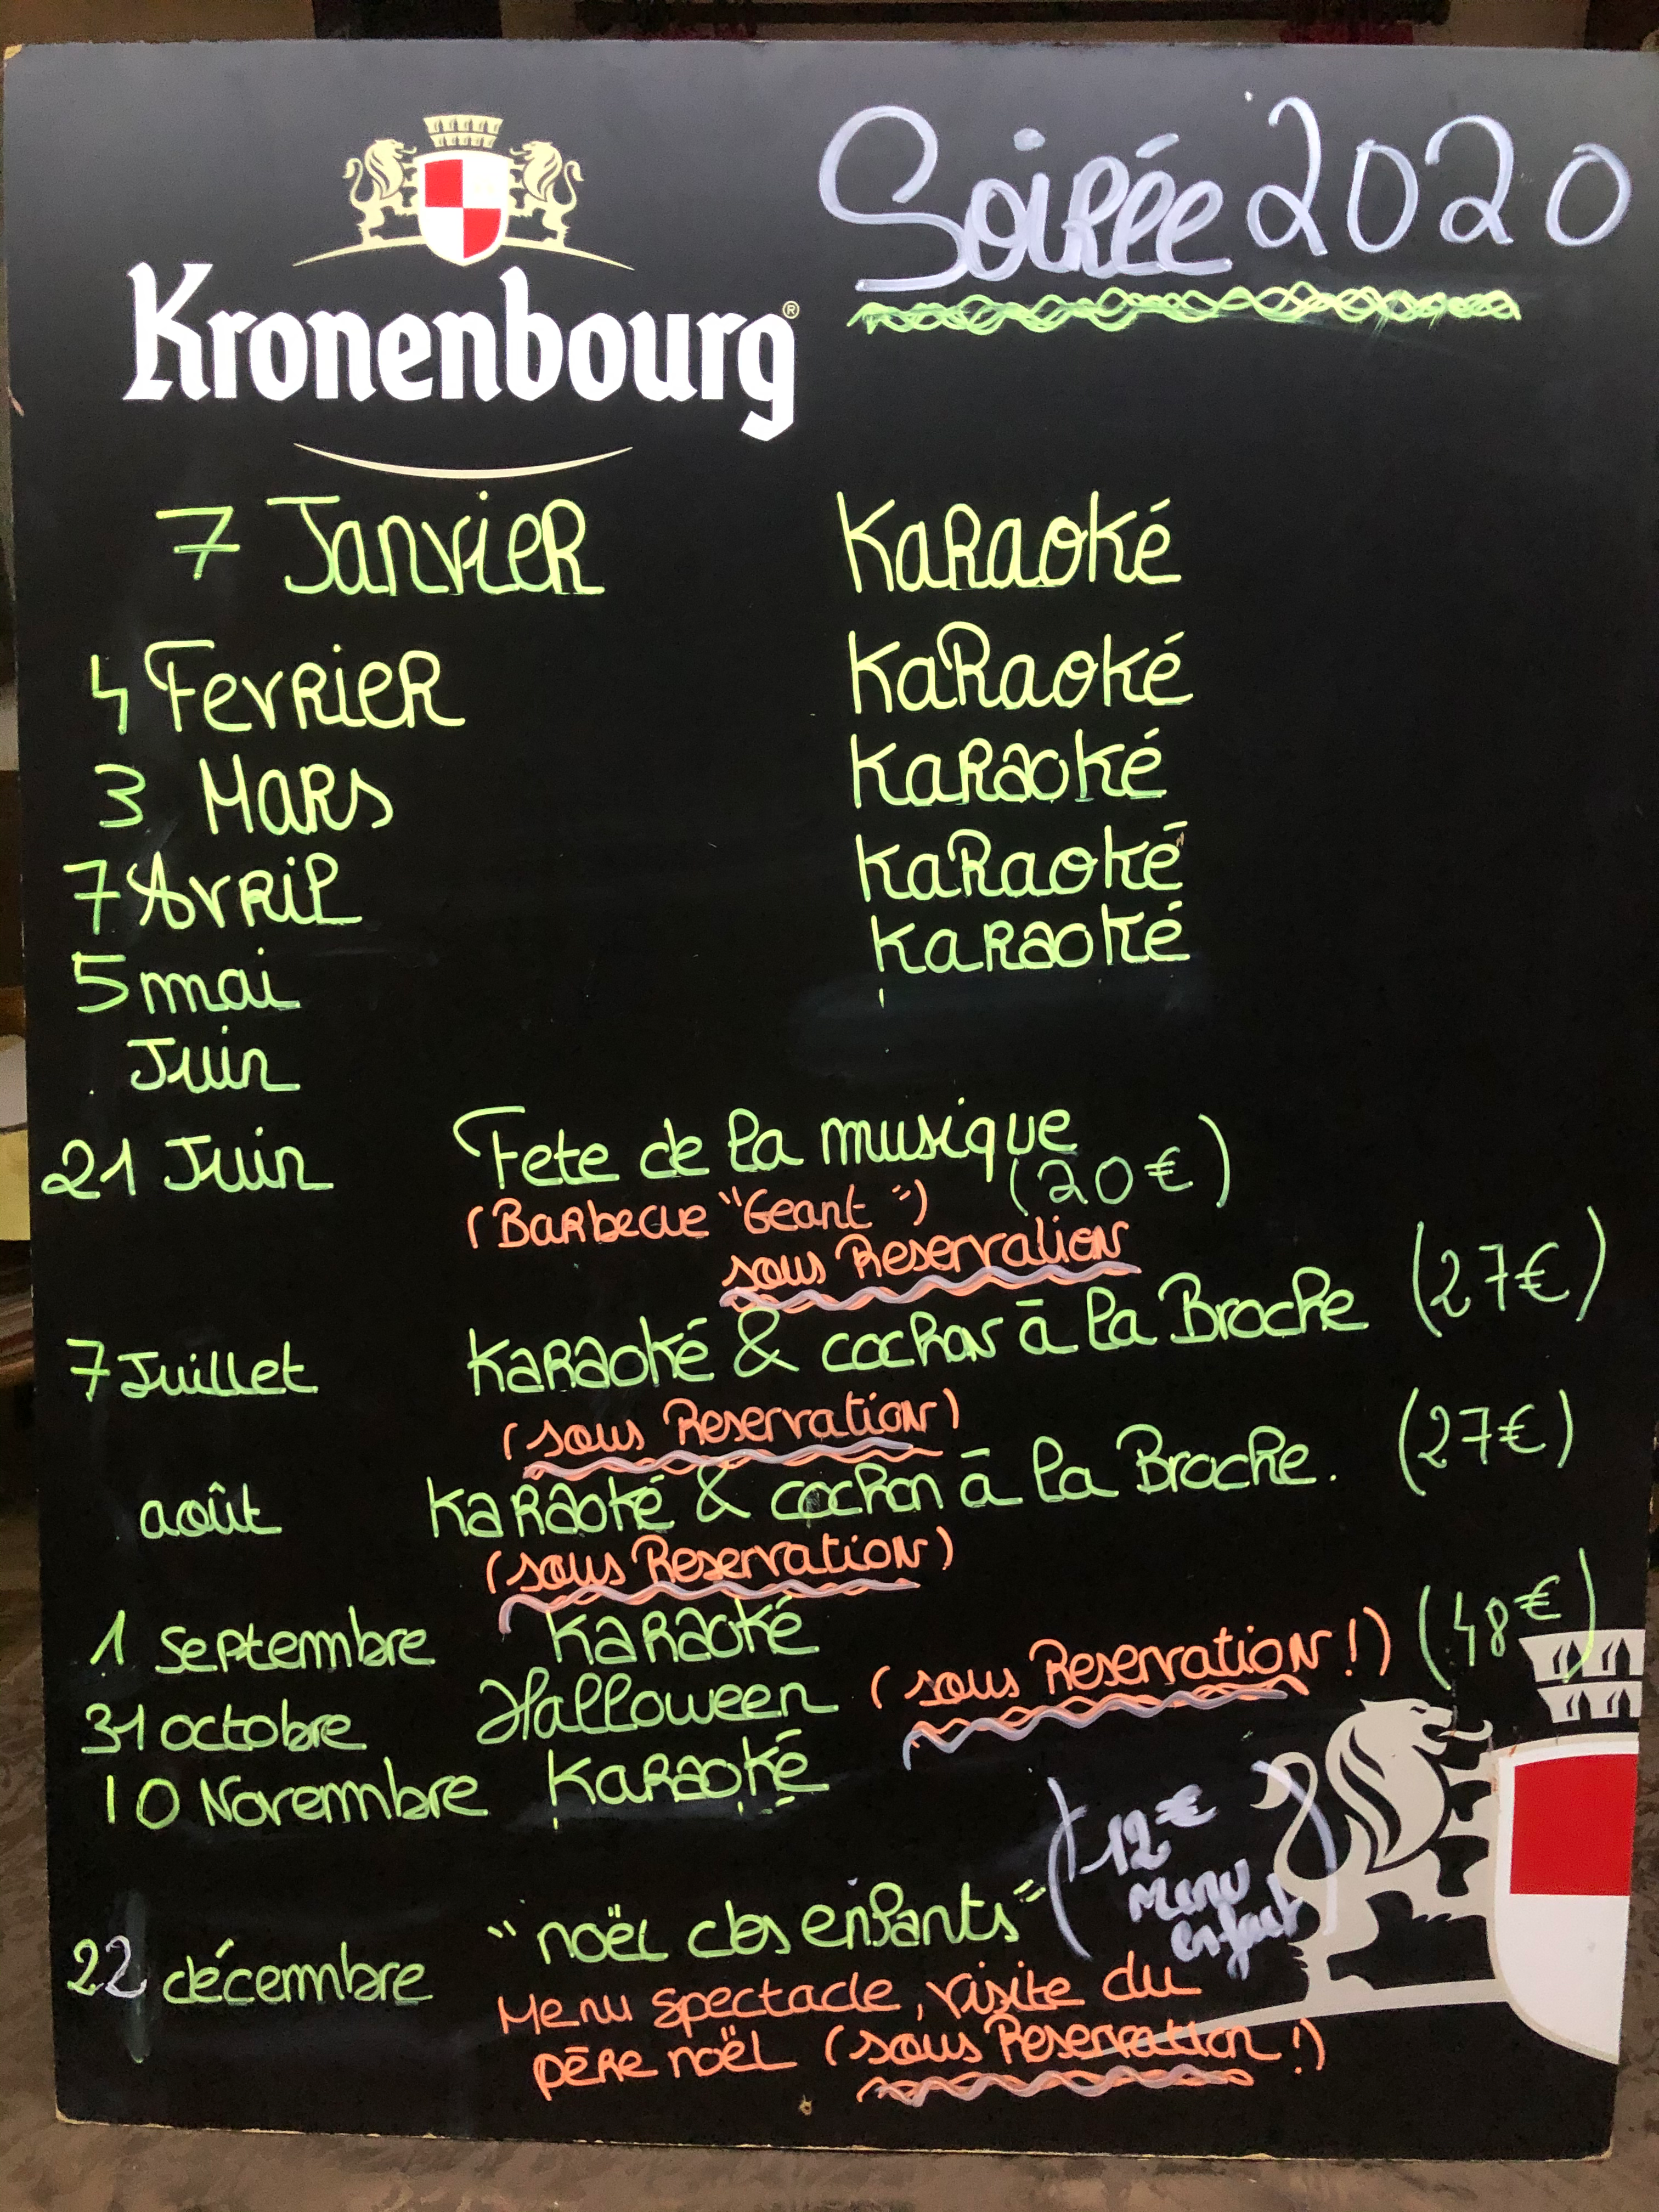 Kronenbourg®
Soirée 2020
7 Janvier Karaoké
4 Fevrier Karaoké
3 Mars Karaoké
7 Avril Karaoké
5 mai Karaoké
Juin
21 Juin Fete de la musique (20€)
(Barbecue "Geant")
sous Reservation
7 Juillet Karaoké & cochon à la Broche (27€)
(sous Reservation)
août Karaoké & cochon à la Broche. (27€)
(sous Reservation)
1 Septembre Karaoké
31 octobre Halloween (sous Reservation!) (48€)
10 Novembre Karaoké
22 décembre "noël des enfants" (12€
Menu
enfant)
Menu spectacle, visite du
père noël (sous Reservation!)